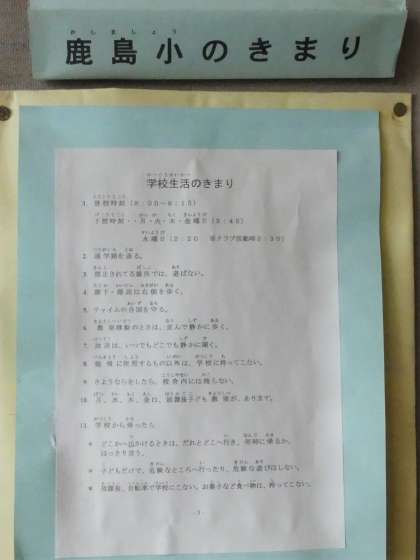 鹿島小のきまり
学校生活のきまり
1. 登校時刻 (8:00~8:15)
下校時刻・・月・火・木・金曜日 (3:45)
水曜日
2. 通学路を通る。
3. 禁止されてる場所では、遊ばない。
4. 廊下・階段は右側を歩く。
5. チャイムの合図を守る。
6. 教室移動のときは、並んで静かに歩く。
7. 放送は、いつでもどこでも静かに聞く。
8. 勉強に使用するもの以外は、学校に持ってこない。
9. さようならをしたら、校舎内には残らない。
10. 月、水、木、金は、放課後子ども教室が、あります。
11. 学校から帰ったら
* どこかへ出かけるときは、だれとどこへ行き、何時に帰るか、
はっきり言う。
* 子どもだけで、危険なところへ行ったり、危険な遊びはしない。
* 放課後、自転車で学校にこない。お菓子など食べ物は、持ってこない。